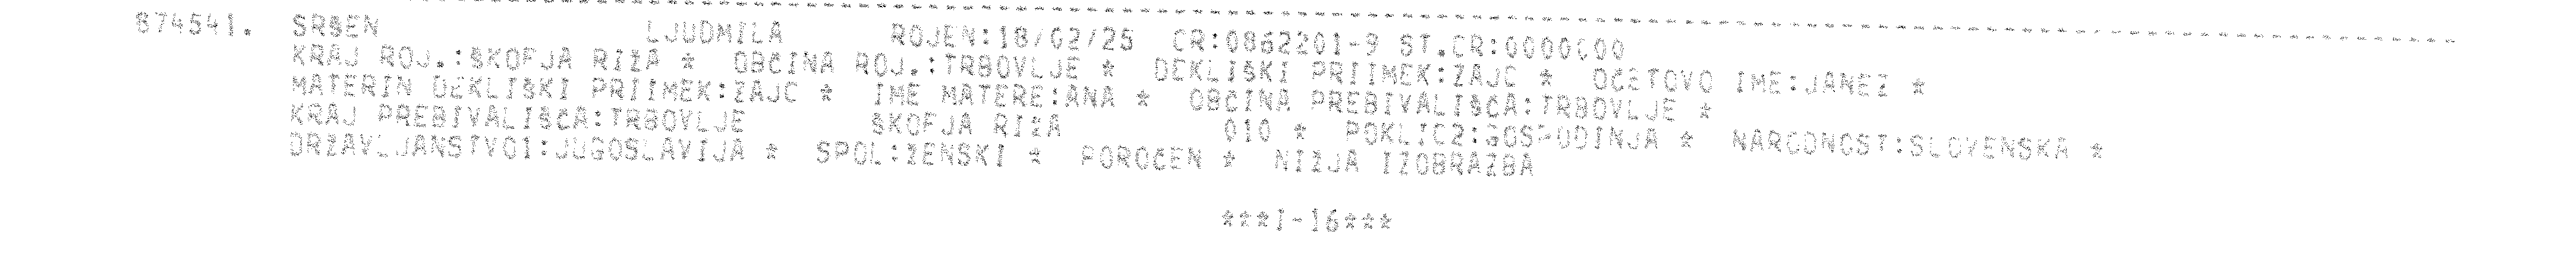 874541. SRŠEN LJUDMILA ROJEN:18/02/25 CR:0862201-9 ST.CR:0000000
KRAJ ROJ.:ŠKOFJA RIŽA * OBČINA ROJ.:TRBOVLJE * DEKLIŠKI PRIIMEK:ZAJC * OČETOVO IME:JANEZ *
MATERIN DEKLIŠKI PRIIMEK:ZAJC * IME MATERE:ANA * OBČINA PREBIVALIŠČA:TRBOVLJE *
KRAJ PREBIVALIŠČA:TRBOVLJE ŠKOFJA RIŽA 010 * POKLIC2:GOSPODINJA * NARODNOST:SLOVENSKA *
DRŽAVLJANSTVO1:JUGOSLAVIJA * SPOL:ŽENSKI * POROČEN * NIŽJA IZOBRAZBA
***I-16***